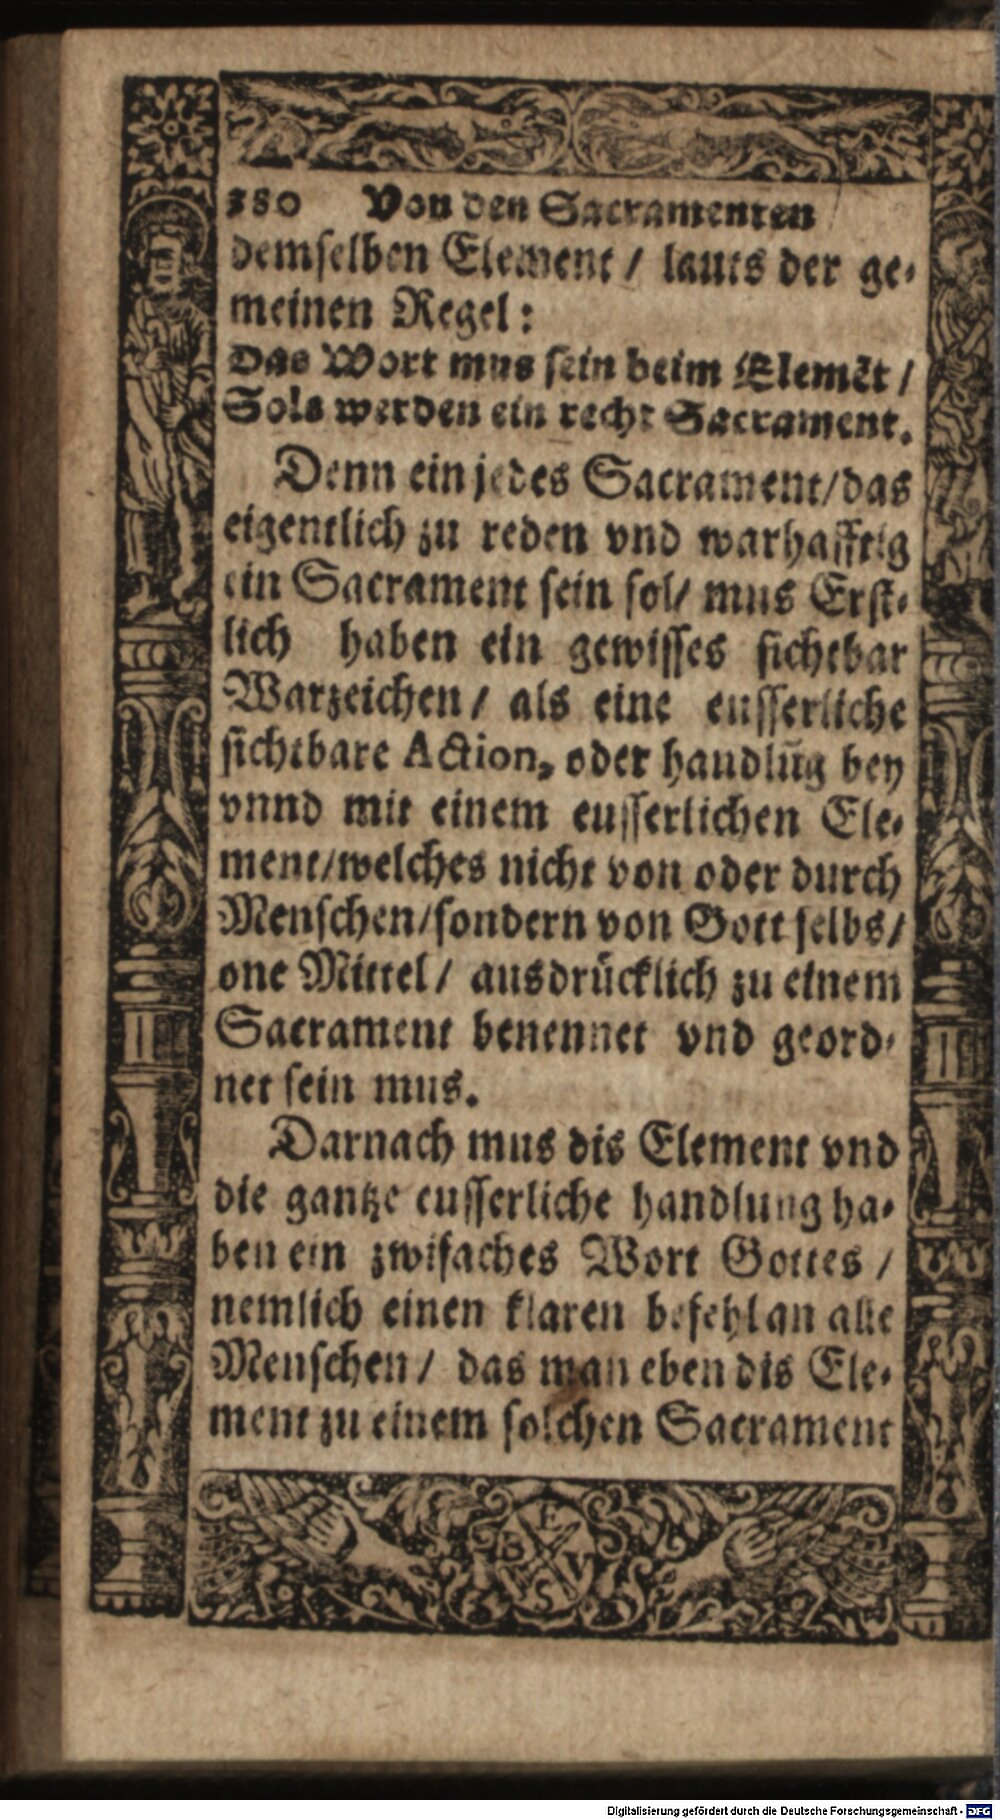 380 Von den Sacramenten
demselben Element / lauts der ge-
meinen Regel:
Das Wort mus sein beim Elemẽt /
Sols werden ein recht Sacrament.
Denn ein jedes Sacrament/das
eigentlich zu reden vnd warhafftig
ein Sacrament sein sol/ mus Erst-
lich haben ein gewisses sichtbar
Warzeichen / als eine eusserliche
sichtbare Action, oder handlũg bey
vnnd mit einem eusserlichen Ele-
ment/welches nicht von oder durch
Menschen/sondern von Gott selbs/
one Mittel / ausdrücklich zu einem
Sacrament benennet vnd geord-
net sein mus.
Darnach mus dis Element vnd
die gantze eusserliche handlung ha-
ben ein zwifaches Wort Gottes /
nemlich einen klaren befehl an alle
Menschen / das man eben dis Ele-
ment zu einem solchen Sacrament
E
B V
S
Digitalisierung gefördert durch die Deutsche Forschungsgemeinschaft - DFG